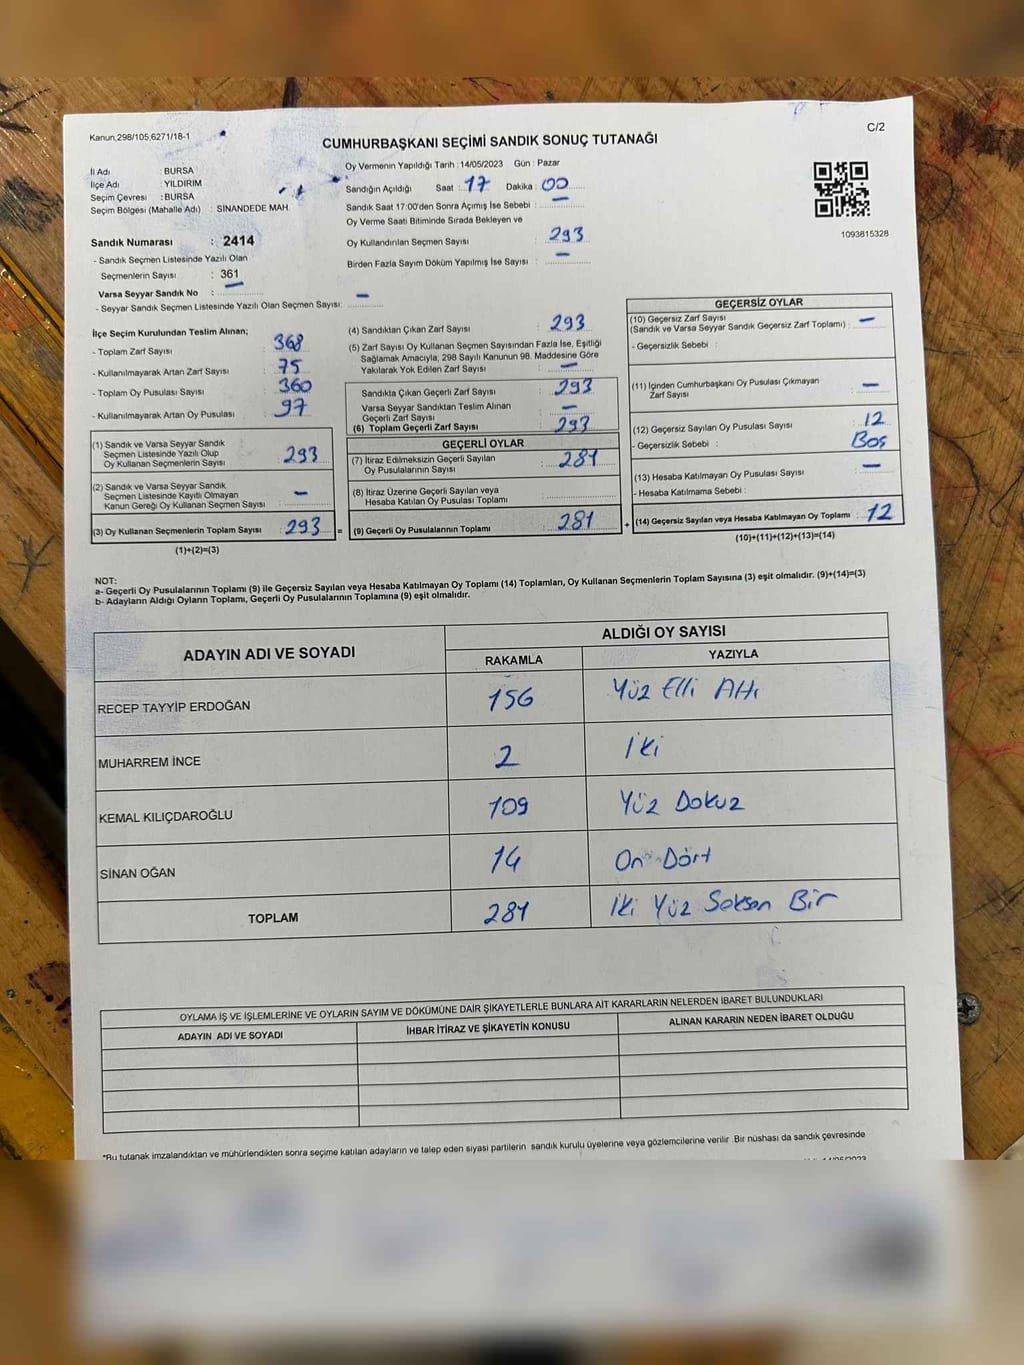 Kanun,298/105,6271/18-1
C/2
CUMHURBAŞKANI SEÇİMİ SANDIK SONUÇ TUTANAĞI
İl Adı : BURSA
İlçe Adı : YILDIRIM
Seçim Çevresi : BURSA
Seçim Bölgesi (Mahalle Adı) : SİNANDEDE MAH.
Sandık Numarası : 2414
- Sandık Seçmen Listesinde Yazılı Olan
Seçmenlerin Sayısı : 361
Varsa Seyyar Sandık No : -
- Seyyar Sandık Seçmen Listesinde Yazılı Olan Seçmen Sayısı: -
Oy Vermenin Yapıldığı Tarih : 14/05/2023 Gün : Pazar
Sandığın Açıldığı Saat : 17 Dakika : 00
Sandık Saat 17:00'den Sonra Açımış İse Sebebi : -
Oy Verme Saati Bitiminde Sırada Bekleyen ve
Oy Kullandırılan Seçmen Sayısı : 293
Birden Fazla Sayım Döküm Yapılmış İse Sayısı : -
1093815328
İlçe Seçim Kurulundan Teslim Alınan;
- Toplam Zarf Sayısı : 368
- Kullanılmayarak Artan Zarf Sayısı : 75
- Toplam Oy Pusulası Sayısı : 360
- Kullanılmayarak Artan Oy Pusulası : 97
(1) Sandık ve Varsa Seyyar Sandık
Seçmen Listesinde Yazılı Olup
Oy Kullanan Seçmenlerin Sayısı : 293
(2) Sandık ve Varsa Seyyar Sandık
Seçmen Listesinde Kayıtlı Olmayan
Kanun Gereği Oy Kullanan Seçmen Sayısı : -
(3) Oy Kullanan Seçmenlerin Toplam Sayısı : 293 =
(1)+(2)=(3)
(4) Sandıktan Çıkan Zarf Sayısı : 293
(5) Zarf Sayısı Oy Kullanan Seçmen Sayısından Fazla İse, Eşitliği
Sağlamak Amacıyla, 298 Sayılı Kanunun 98. Maddesine Göre
Yakılarak Yok Edilen Zarf Sayısı : -
Sandıkta Çıkan Geçerli Zarf Sayısı : 293
Varsa Seyyar Sandıktan Teslim Alınan
Geçerli Zarf Sayısı : -
(6) Toplam Geçerli Zarf Sayısı : 293
GEÇERLİ OYLAR
(7) İtiraz Edilmeksizin Geçerli Sayılan
Oy Pusulalarının Sayısı : 281
(8) İtiraz Üzerine Geçerli Sayılan veya
Hesaba Katılan Oy Pusulası Toplamı :
(9) Geçerli Oy Pusulalarının Toplamı : 281 +
GEÇERSİZ OYLAR
(10) Geçersiz Zarf Sayısı
(Sandık ve Varsa Seyyar Sandık Geçersiz Zarf Toplamı) : -
- Geçersizlik Sebebi :
(11) İçinden Cumhurbaşkanı Oy Pusulası Çıkmayan
Zarf Sayısı : -
(12) Geçersiz Sayılan Oy Pusulası Sayısı : 12
- Geçersizlik Sebebi : Boş
(13) Hesaba Katılmayan Oy Pusulası Sayısı : -
- Hesaba Katılmama Sebebi :
(14) Geçersiz Sayılan veya Hesaba Katılmayan Oy Toplamı : 12
(10)+(11)+(12)+(13)=(14)
NOT:
a- Geçerli Oy Pusulalarının Toplamı (9) ile Geçersiz Sayılan veya Hesaba Katılmayan Oy Toplamı (14) Toplamları, Oy Kullanan Seçmenlerin Toplam Sayısına (3) eşit olmalıdır. (9)+(14)=(3)
b- Adayların Aldığı Oyların Toplamı, Geçerli Oy Pusulalarının Toplamına (9) eşit olmalıdır.
ADAYIN ADI VE SOYADI ALDIĞI OY SAYISI
RAKAMLA YAZIYLA
RECEP TAYYİP ERDOĞAN 156 Yüz Elli Altı
MUHARREM İNCE 2 İki
KEMAL KILIÇDAROĞLU 109 Yüz Dokuz
SİNAN OĞAN 14 On Dört
TOPLAM 281 İki Yüz Seksen Bir
OYLAMA İŞ VE İŞLEMLERİNE VE OYLARIN SAYIM VE DÖKÜMÜNE DAİR ŞİKAYETLERLE BUNLARA AİT KARARLARIN NELERDEN İBARET BULUNDUKLARI
ADAYIN ADI VE SOYADI İHBAR İTİRAZ VE ŞİKAYETİN KONUSU ALINAN KARARIN NEDEN İBARET OLDUĞU
*Bu tutanak imzalandıktan ve mühürlendikten sonra seçime katılan adayların ve talep eden siyasi partilerin sandık kurulu üyelerine veya gözlemcilerine verilir. Bir nüshası da sandık çevresinde